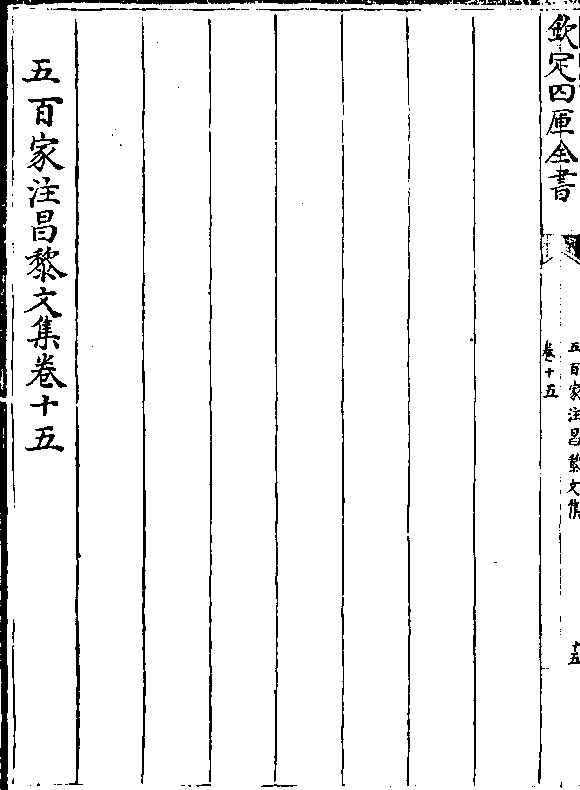 欽定四庫全書
五百家注昌黎文集
卷十五
十五
五百家注昌黎文集卷十五